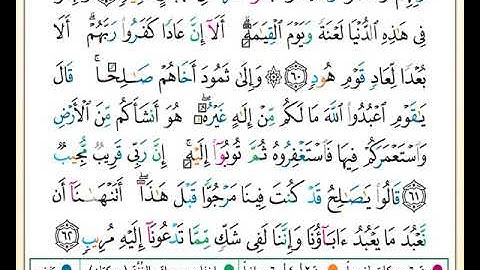 فِى هَٰذِهِ ٱلدُّنْيَا لَعْنَةً وَيَوْمَ ٱلْقِيَٰمَةِ ۗ أَلَآ إِنَّ عَادًا كَفَرُوا۟ رَبَّهُمْ ۗ أَلَا
بُعْدًا لِّعَادٍ قَوْمِ هُودٍ ٦٠ ۞ وَإِلَىٰ ثَمُودَ أَخَاهُمْ صَٰلِحًا ۚ قَالَ
يَٰقَوْمِ ٱعْبُدُوا۟ ٱللَّهَ مَا لَكُم مِّنْ إِلَٰهٍ غَيْرُهُۥ ۖ هُوَ أَنشَأَكُم مِّنَ ٱلْأَرْضِ
وَٱسْتَعْمَرَكُمْ فِيهَا فَٱسْتَغْفِرُوهُ ثُمَّ تُوبُوٓا۟ إِلَيْهِ ۚ إِنَّ رَبِّى قَرِيبٌ مُّجِيبٌ
٦١ قَالُوا۟ يَٰصَٰلِحُ قَدْ كُنتَ فِينَا مَرْجُوًّا قَبْلَ هَٰذَآ ۖ أَتَنْهَىٰنَآ أَن
نَّعْبُدَ مَا يَعْبُدُ ءَابَآؤُنَا وَإِنَّنَا لَفِى شَكٍّ مِّمَّا تَدْعُونَآ إِلَيْهِ مُرِيبٍ ٦٢